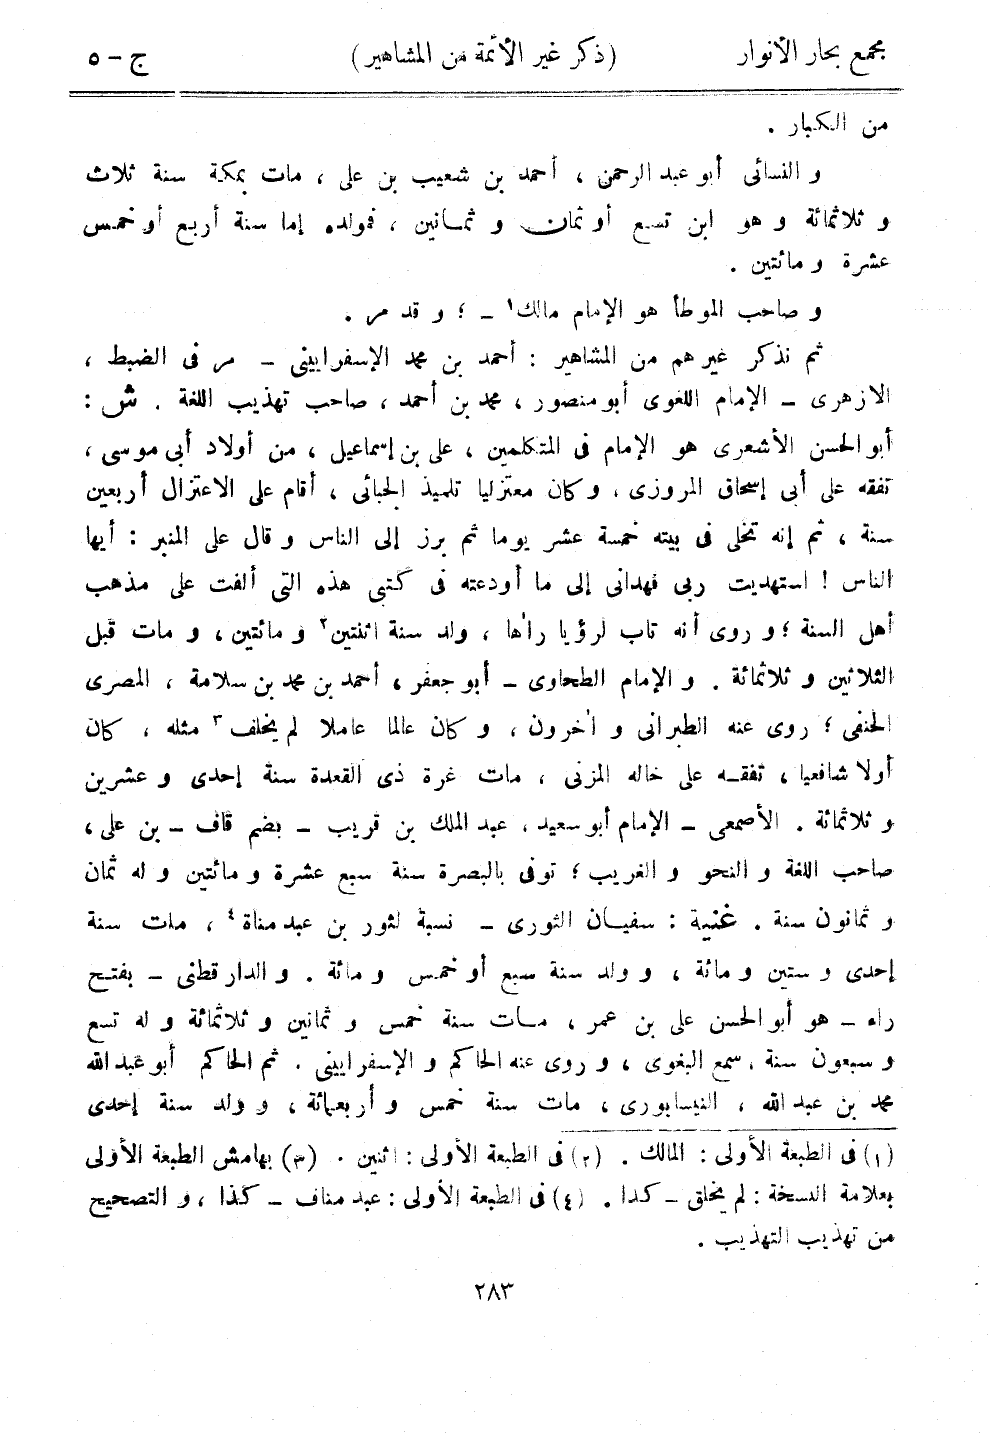 مجمع بحار الأنوار (ذكر غير الأئمة من المشاهير) ج – ٥
من الكبار .
و النسائى أبو عبد الرحمن ، أحمد بن شعيب بن على ، مات بمكة سنة ثلاث
و ثلاثمائة و هو ابن تسع أو ثمان و ثمانين ، فمولده إما سنة أربع أو خمس
عشرة و مائتين .
و صاحب الموطأ هو الإمام مالك١ ـ ؛ و قد مر .
ثم نذكر غير هم من المشاهير : أحمد بن محمد الإسفراييني ـ مر فى الضبط ،
الازهرى ـ الإمام اللغوى أبو منصور ، محمد بن أحمد ، صاحب تهذيب اللغة . ش :
أبو الحسن الأشعرى هو الإمام فى المتكلمين ، على بن إسماعيل ، من أولاد أبى موسى ،
تفقه على أبى إسحاق المروزى ، و كان معتزليا تلميذ الجبائى ، أقام على الاعتزال أربعين
سنة ، ثم إنه تخلى فى بيته خمسة عشر يوما ثم برز إلى الناس و قال على المنبر : أيها
الناس ! استهديت ربى فهدانى إلى ما أودعته فى كتبى هذه التى ألفت على مذهب
أهل السنة ؛ و روى أنه تاب لرؤيا رأها ، ولد سنة اثنتين٢ و مائتين ، و مات قبل
الثلاثين و ثلاثمائة . و الإمام الطحاوى ـ أبو جعفر ، أحمد بن محمد بن سلامة ، المصرى
الحنفى ؛ روى عنه الطبرانى و أخرون ، و كان عالما عاملا لم يخلف٣ مثله ، كان
أولا شافعيا ، تفقه على خاله المزنى ، مات غرة ذى القعدة سنة إحدى و عشرين
و ثلاثمائة . الأصمعى ـ الإمام أبو سعيد ، عبد الملك بن قريب ـ بضم قاف ـ بن على ،
صاحب اللغة و النحو و الغريب ؛ توفى بالبصرة سنة سبع عشرة و مائتين و له ثمان
و ثمانون سنة . غنية : سفيان الثورى ـ نسبة لثور بن عبد مناة٤ ، مات سنة
إحدى و ستين و مائة ، و ولد سنة سبع أو خمس و مائة . و الدار قطنى ـ بفتح
راه ـ هو أبو الحسن على بن عمر ، مات سنة خمس و ثمانين و ثلاثمائة و له تسع
و سبعون سنة ، سمع البغوى ، و روى عنه الحاكم و الإسفراييني . ثم الحاكم أبو عبد الله
محمد بن عبد الله ، النيسابورى ، مات سنة خمس و أربعمائة ، و ولد سنة إحدى
(١) فى الطبعة الأولى : المالك . (٢) فى الطبعة الأولى : اثنين . (٣) بهامش الطبعة الأولى
بعلامة النسخة : لم يخلق ـ كذا . (٤) فى الطبعة الأولى : عبد مناف ـ كذا ، و التصحيح
من تهذيب التهذيب .
٢٨٣